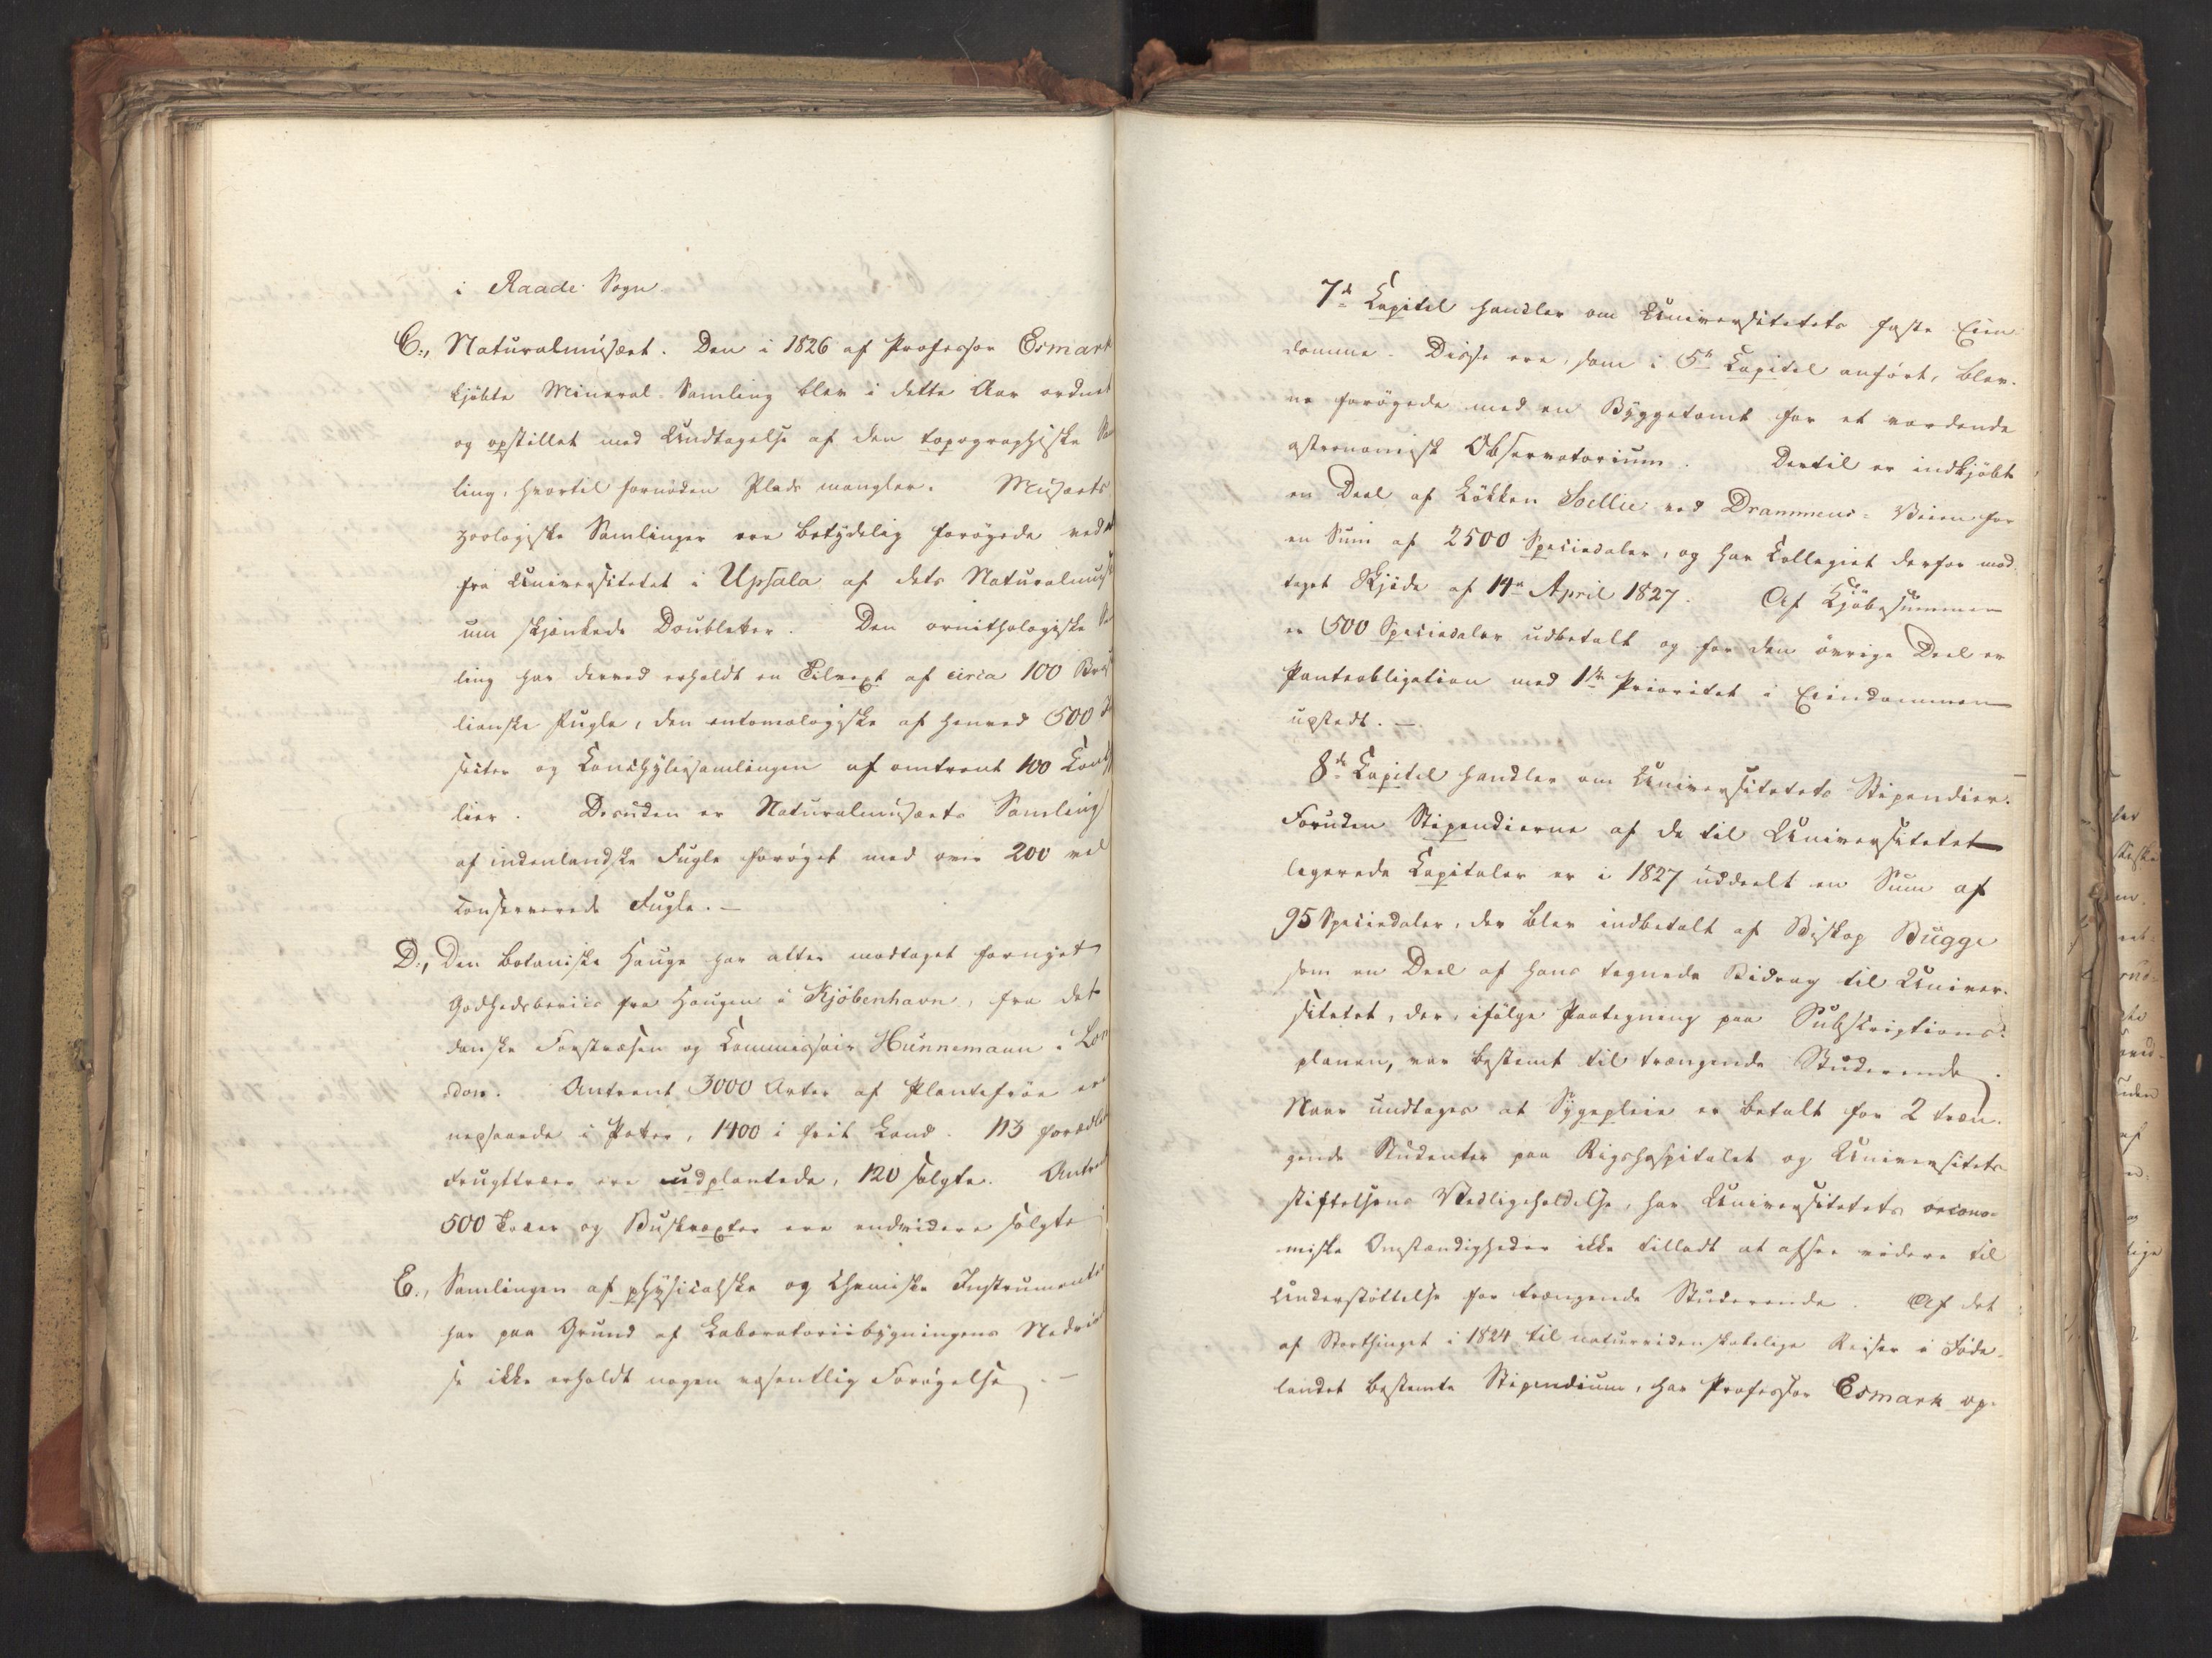 i Raade Sogn.
C., Naturalmusæet. Den i 1826 af Professor Esmark
kjøbte Mineral-Samling blev i dette Aar ordnet
og opstillet med Undtagelse af den topographiske Sam
ling, hvortil fornøden Plads mangler. Musæets
zoologiske Samlinger ere betydelig forøgede ved
fra Universitetet i Upsala af dets Naturalmusæ
um skjænkede Doubletter. Den ornithologiske Sam
ling har derved erholdt en Tilvext af circa 100 Brasi
lianske Fugle, den entomologiske af henved 500 In
secter og Conchyliesamlingen af omtrent 100 Conchy
lier. Desuden er Naturalmusæets Samling
af indenlandske Fugle forøget med over 200 vel
conserverede Fugle. —
D., Den botaniske Hauge har atter modtaget fornyet
Godhedsbeviis fra Haugen i Kjöbenhavn, fra det
danske Forstvæsen og Commissair Hünnemann i Lon
don. Omtrent 3000 Arter af Plantefrøe ere
nedsaaede i Potter, 1400 i frit Land. 113 forædlede
Frugttræer ere udplantede, 120 solgte. Omtrent
500 Træer og Buskvexter ere endvidere solgte
E., Samlingen af physicalske og chemiske Instrumenter
har paa Grund af Laboratoriibygningens Nedrivel
se ikke erholdt nogen væsentlig Forøgelse. —
7de Capitel handler om Universitetets faste Eien
domme. Disse ere, som i 5te Capitel anført, blev-
ne forøgede med en Byggetomt for et vordende
astronomisk Observatorium. Dertil er indkjøbt
en Deel af Løkken Soellie ved Drammens-Veien for
en Sum af 2500 Speciedaler, og har Collegiet derfor mod-
taget Skjøde af 14de April 1827. Af Kjøbesummen
er 500 Speciedaler udbetalt og for den øvrige Deel er
Panteobligation med 1ste Prioritet i Eiendommen
udstedt. —
8de Capitel handler om Universitetets Stipendier.
Foruden Stipendierne af de til Universitetet
legerede Capitaler er i 1827 uddeelt en Sum af
95 Speciedaler, der blev indbetalt af Biskop Bugge
som en Deel af hans tegnede Bidrag til Univer-
sitetet, der, ifølge Paategning paa Subscriptions-
planen, var bestemt til trængende Studerende.
Naar undtages at Sygepleie er betalt for 2 træn-
gende Studenter paa Rigshospitalet og Universitets
stiftelsens Vedligeholdelse, har Universitetets oecono-
miske Omstændigheder ikke tilladt at afsee videre til
Understøttelse for trængende Studerende. Af det
af Storthinget i 1824 til naturvidenskabelige Reiser i Føde-
landet bestemte Stipendium, har Professor Esmark op-